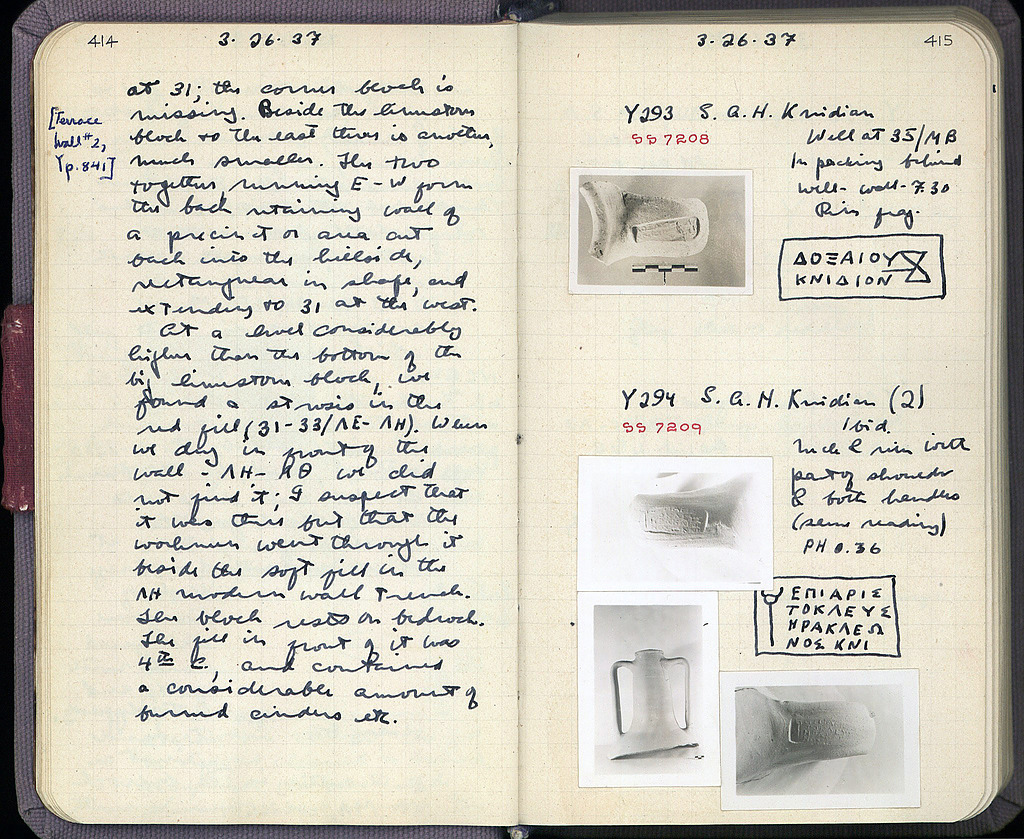 414
3·26·37
at 31; the corner block is
missing. Beside the limestone
block to the east there is another,
much smaller. The two
together, running E-W form
the back retaining wall of
a precinct or area cut
back into the hillside,
rectangular in shape, and
extending to 31 at the west.
At a level considerably
higher than the bottom of the
big limestone block, we
found a strosis in the
red fill (31-33/ΛΕ-ΛΗ). When
we dug in front of the
wall - ΛΗ-ΛΘ we did
not find it; I suspect that
it was there but that the
workmen went through it
beside the soft fill in the
ΛΗ modern wall trench.
The block rests on bedrock.
The fill in front of it was
4th c., and contained
a considerable amount of
burned cinders etc.
[Terrace
Wall #2,
Y p. 841]
3·26·37
415
Y293 S. A. H. Knidian
SS 7208
Well at 35/ΜΒ
In packing behind
well-wall-7.30
Rim frag.
ΔΟΞΑΙΟΥ
ΚΝΙΔΙΟΝ
Y294 S. A. H. Knidian (2)
SS 7209
Ibid.
Neck & rim with
part of shoulder
& both handles
(same reading)
PH 0.36
ΕΠΙΑΡΙΣ
ΤΟΚΛΕΥΣ
ΗΡΑΚΛΕΩ
ΝΟΣ ΚΝΙ